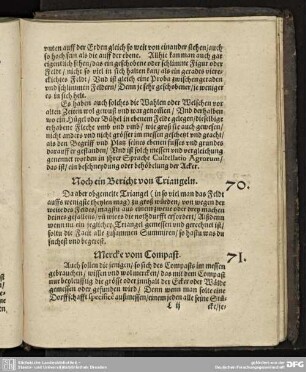 vnten auff der Erden gleich so weit von einander stehen / auch
so hoch sein als die auff der ebene. Allhie kan man auch gar
eigentlich sehen / das ein geschobene oder schlimme Figur oder
Feldt / nicht so viel in sich halten kan / als ein gerades viereckichtes
Feldt / Vnd ist gleich eine Proba zwischen geraden
vnd schlimmen Feldern / Denn je sehr geschobener / je weniger
es in sich helt.
Es haben auch solches die Wahlen oder Welschen vor
alten Zeiten wol gewust vnd war genommen / Vnd derhalben
wo ein Hügel oder Bühel in ebenem Felde gelegen / dieselbige
erhabene Fleche vmb vnd vmb / wie gros sie auch gewesen /
nicht anders vnd nicht grösser im messen geschetzt vnd geacht /
als den Begriff vnd Plan seines ebenen fusses vnd grundes
darauff er gestanden / Vnd ist solch messen vnd vergleichung
genennet worden in jhrer Sprache Cultellatio Agrorum /
das ist / ein beschneydung oder behobelung der Acker.
Noch ein Bericht von Triangeln.
70.
Da aber obgemelte Triangel (in so viel man das Feldt
auffs wenigste theylen mag) zu gros würden / von wegen der
weite des Feldes / magstu aus einem zweene oder drey machen
deines gefallens / vnd wie es die nothdurfft erfordert / Aussdenn
wenn nu ein jeglicher Triangel gemessen vnd gerechnet ist /
solstu die Facit alle zusammen Summiren / so hastu was du
suchest vnd begerest.
Mercke vom Compast.
71.
Auch sollen die jenigen / so sich des Compasts im messen
gebrauchen / wissen vnd wol mercken / das mit dem Compast
nur beyleufftig die grösse oder innhalt der Ecker oder Wälde
gewiesen oder gefunden wird / Denn wenn man solte eine
Dorffschafft specificè ausmessen / einem jeden alle seine Stück
L ij